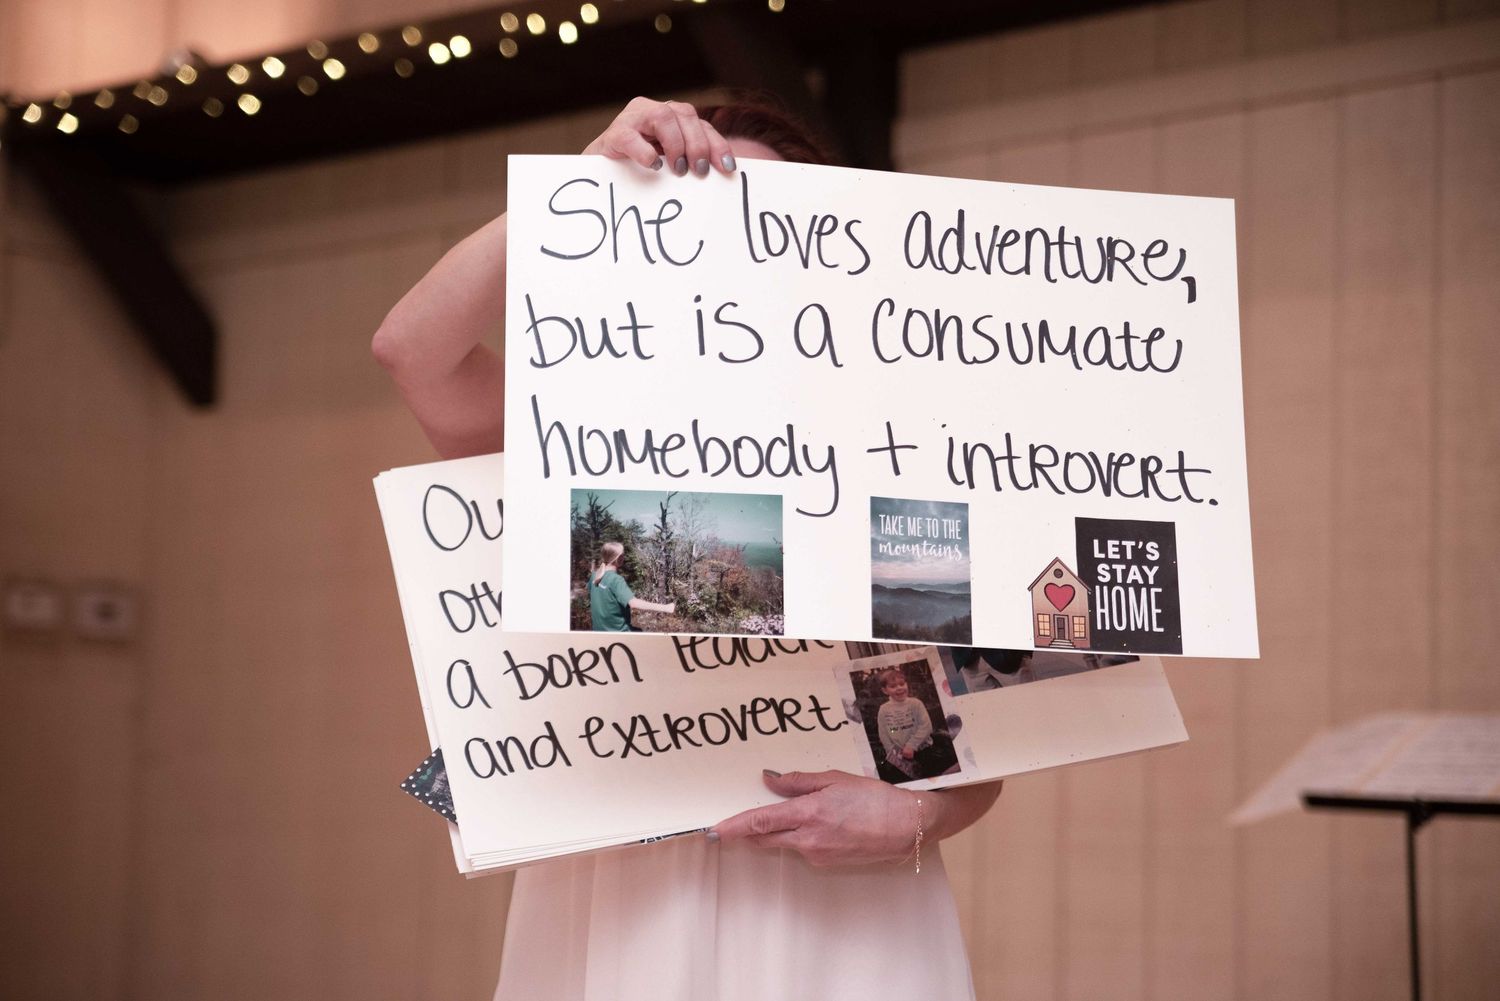 She loves adventure,
but is a consumate
homebody + introvert.
TAKE ME TO THE
mountains
LET'S
STAY
HOME
Ou
oth
a born leader
and extrovert.